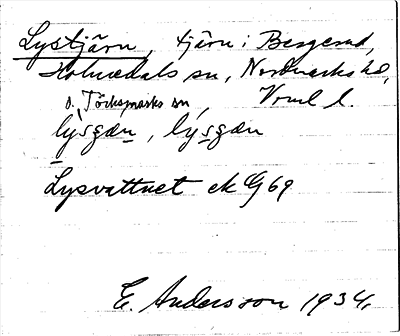 Lystjärn, tjärn i Bergerud,
Holmedals sn, Nordmarks hd,
o. Töcksmarks sn, Vrml l.
lýsgæn, lýsgæn
Lysvattnet ek G 69
E. Andersson 1934.